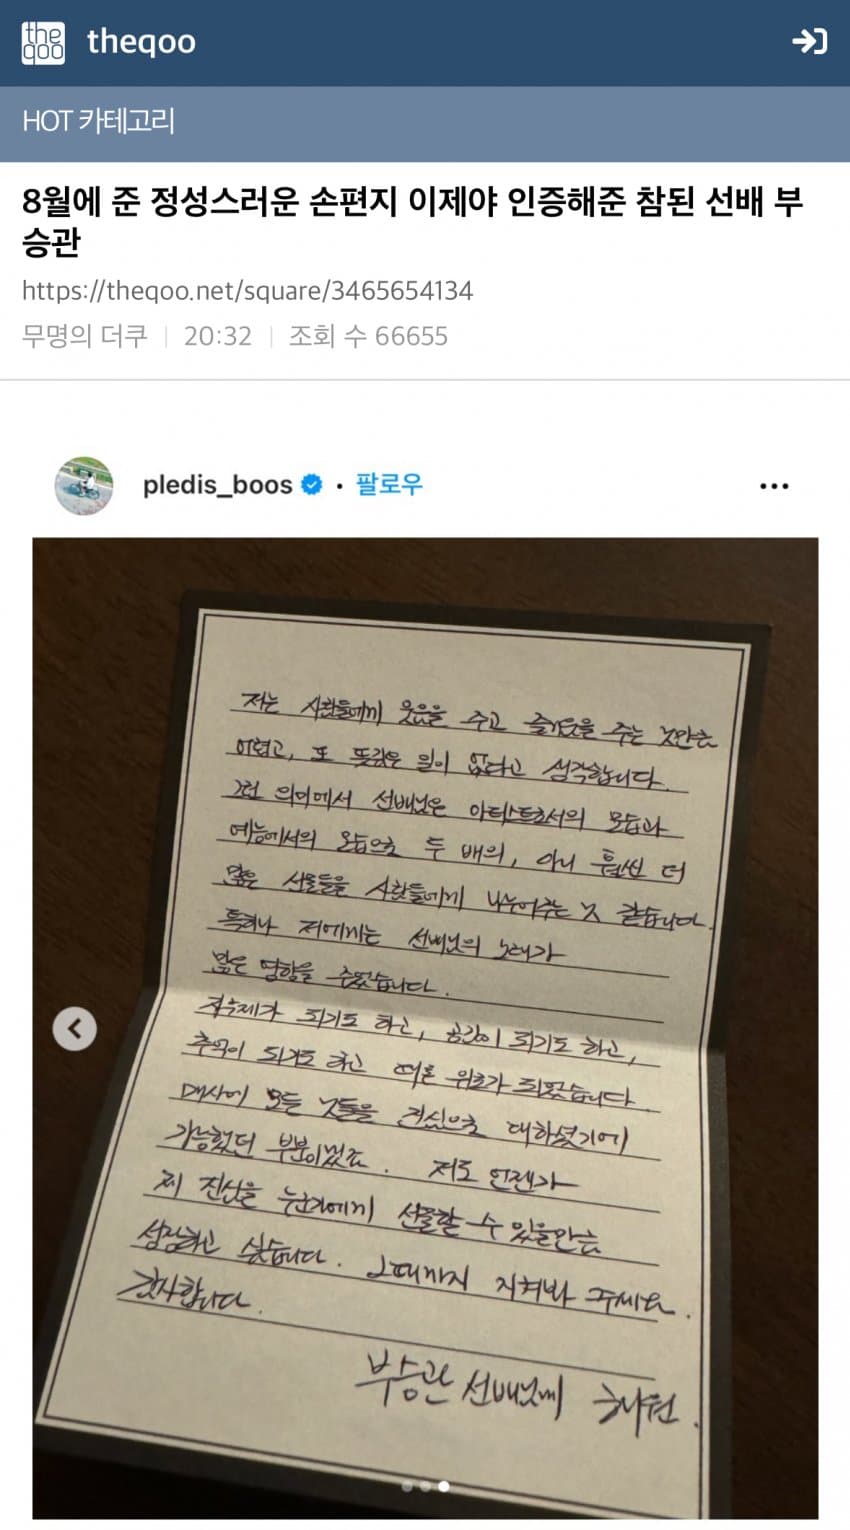 the qoo
theqoo
HOT 카테고리
8월에 준 정성스러운 손편지 이제야 인증해준 참된 선배 부
승관
https://theqoo.net/square/3465654134
무명의 더쿠 | 20:32 | 조회 수 66655
pledis_boos • 팔로우
저는 사람들에게 웃음을 주고 즐거움을 주는 것만큼
어렵고, 또 뜻깊은 일이 없다고 생각합니다.
그런 의미에서 선배님은 아티스트로서의 모습과
예능에서의 모습으로 두 배의, 아니 훨씬 더
많은 선물들을 사람들에게 나누어주는 것 같습니다.
특히나 저에게는 선배님의 노래가
많은 영향을 주었습니다.
되기도 하고, 공감이 되기도 하고,
추억이 되기도 하고 때론 위로가 되었습니다.
매사에 모든 것들을 진심으로 대하셨기에
가능했던 부분이었죠. 저도 언젠가
제 진심을 누군가에게 선물할 수 있을만큼
성장하고 싶습니다. 그때까지 지켜봐 주세요.
감사합니다.
부승관 선배님께